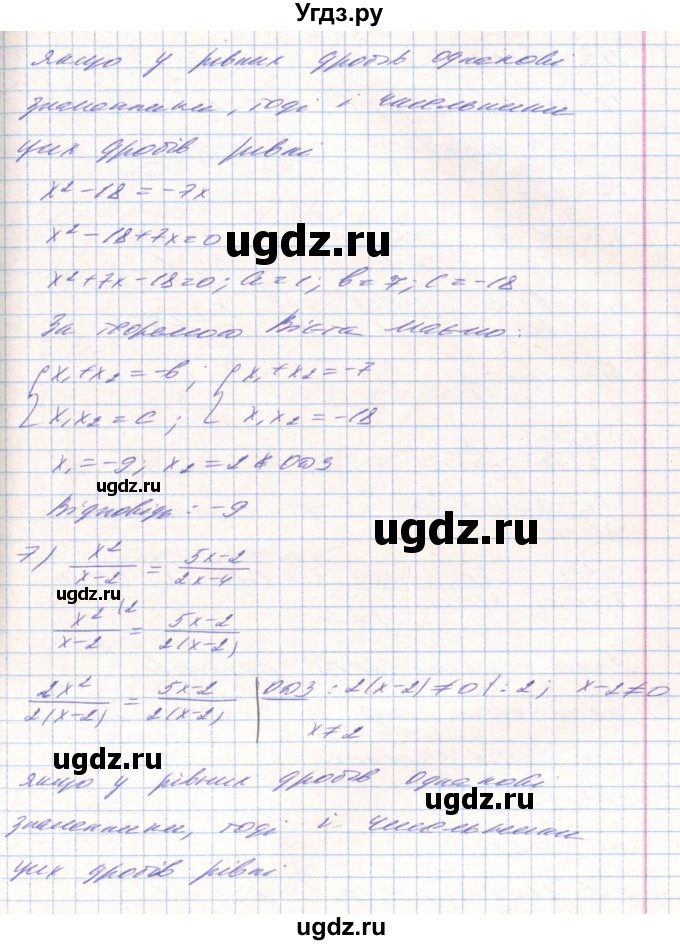 Угдз.ру
якщо у рівних дробів однакові
знаменники, тоді і чисельники
цих дробів рівні
x² - 18 = -7x
x² - 18 + 7x = 0
ugdz.ru
x² + 7x - 18 = 0; a = 1; b = 7; c = -18
За теоремою Вієта маємо:
{ x₁ + x₂ = -b; { x₁ + x₂ = -7
x₁x₂ = c; x₁x₂ = -18
x₁ = -9; x₂ = 2 ∉ ОДЗ
ugdz.ru
Відповідь: -9
ugdz.ru
7) x²/(x-2) = (5x-2)/(2x-4)
ugdz.ru
x²/(x-2) (2 = (5x-2)/(2(x-2))
2x²/(2(x-2)) = (5x-2)/(2(x-2)) | ОДЗ: 2(x-2) ≠ 0 | : 2; x-2 ≠ 0
x ≠ 2
ugdz.ru
якщо у рівних дробів однакові
ugdz.ru
знаменники, тоді і чисельники
цих дробів рівні
ugdz.ru